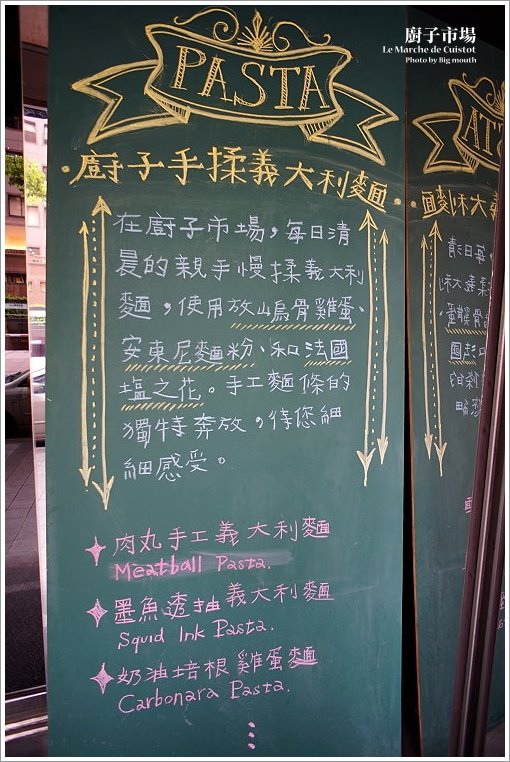 廚子市場
Le Marche de Cuistot
Photo by Big mouth
PASTA
·廚子手揉義大利麵·
在廚子市場，每日清
晨的親手慢揉義大利
麵，使用放山烏骨雞蛋、
安東尼麵粉、和法國
塩之花。手工麵條的
獨特奔放，待您細
細感受。
肉丸手工義大利麵
Meatball Pasta.
墨魚透抽義大利麵
Squid Ink Pasta.
奶油培根雞蛋麵
Carbonara Pasta.